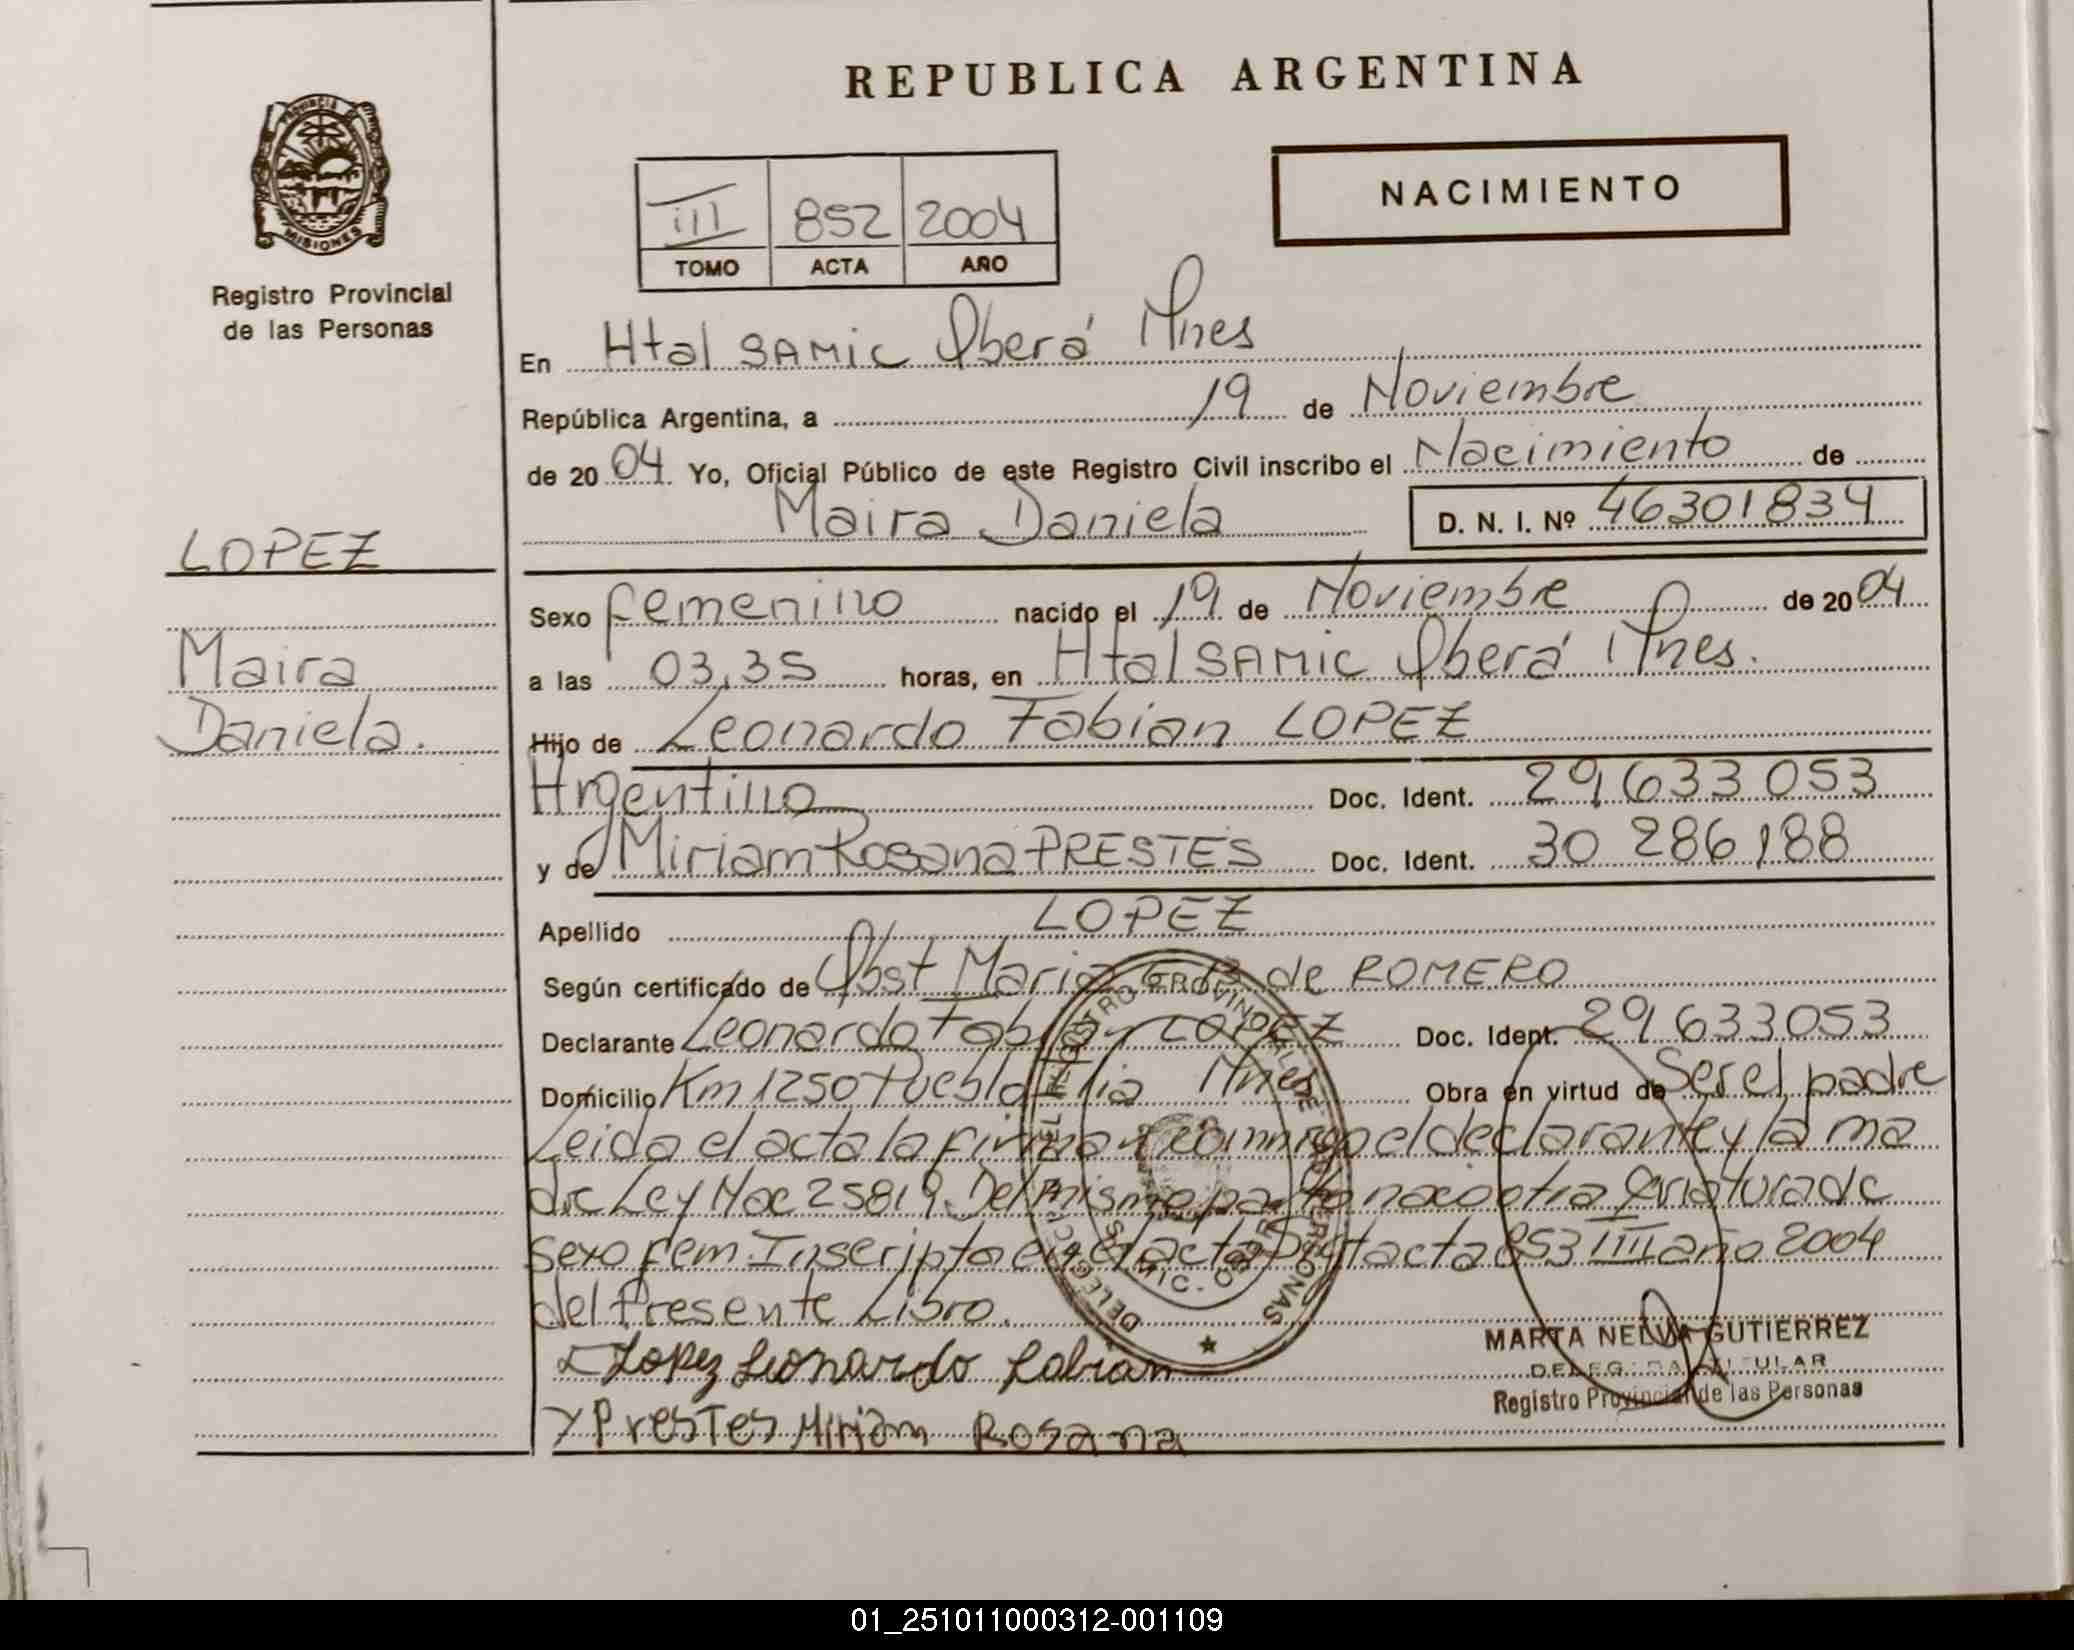 REPUBLICA ARGENTINA
PROVINCIA DE
MISIONES
Registro Provincial
de las Personas
NACIMIENTO
III 852 2004
TOMO ACTA AÑO
En Htal SAMIC Oberá Mnes
República Argentina, a 19 de Noviembre
de 2004. Yo, Oficial Público de este Registro Civil inscribo el Nacimiento de
Maira Daniela D. N. I. Nº 46301834
LOPEZ
Maira
Daniela.
Sexo femenino nacido el 19 de Noviembre de 2004
a las 03,35 horas, en Htal SAMIC Oberá Mnes.
Hijo de Leonardo Fabian LOPEZ
Argentino Doc. Ident. 29 633 053
y de Miriam Rosana PRESTES Doc. Ident. 30 286 188
Apellido LOPEZ
Según certificado de Obst Maria de ROMERO
Declarante Leonardo Fabian LOPEZ Doc. Ident. 29 633 053
Domicilio Km 1250 Pueblo Mnes Obra en virtud de Ser el padre
Leida el acta la firman conmigo el declarante y la ma
dre Ley Nac 25819. Del mismo parto nacio otra criatura de
sexo fem. Inscripta en el acta acta 853 III año 2004
del Presente Libro.
Lopez Leonardo Fabian
Prestes Miriam Rosana
MARTA NELVA GUTIERREZ
DELEGADA TITULAR
Registro Provincial de las Personas
DELEGACION DEL REGISTRO PROVINCIAL DE LAS PERSONAS
01_251011000312-001109